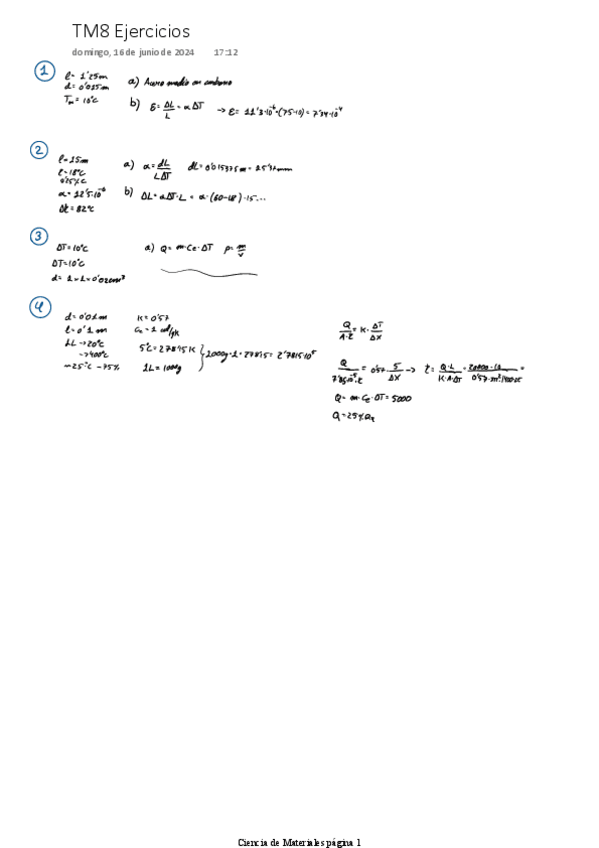 TM8 Ejercicios
domingo, 16 de junio de 2024 17:12
1
l= 1'25m
d= 0'025m
T = 10°C
a) Acero medio en carbono
b) ε = ΔL/L = α ΔT → ε = 11'3·10⁻⁶·(75-10) = 7'34·10⁻⁴
2
l=15m
t=18°C
α = 12'5·10⁻⁶
Δt = 82°C
a) α = dL/LΔT dL = 0'015375m = 15'37mm
b) ΔL = αΔT·L = α·(60-18)·15...
3
ΔT=10°C
ΔT=10°C
d= 1×1×0'02cm³
a) Q= m·Ce·ΔT ρ= m/v
4
d= 0'01m
l= 0'1m
1L →20°C
→400°C
25°C -75%
K=0'57
Ce = 1 cal/gK
5°C = 278'15K
1L = 1000g
1000g·1·278'15 = 2'7815·10⁵
Q/A·t = K·ΔT/ΔX
Q/7'85·10⁻⁵·t = 0'57·5/ΔX → t = Q·L/K·A·ΔT =
Q= m·Ce·ΔT = 5000
Q=25%Q
Ciencia de Materiales página 1